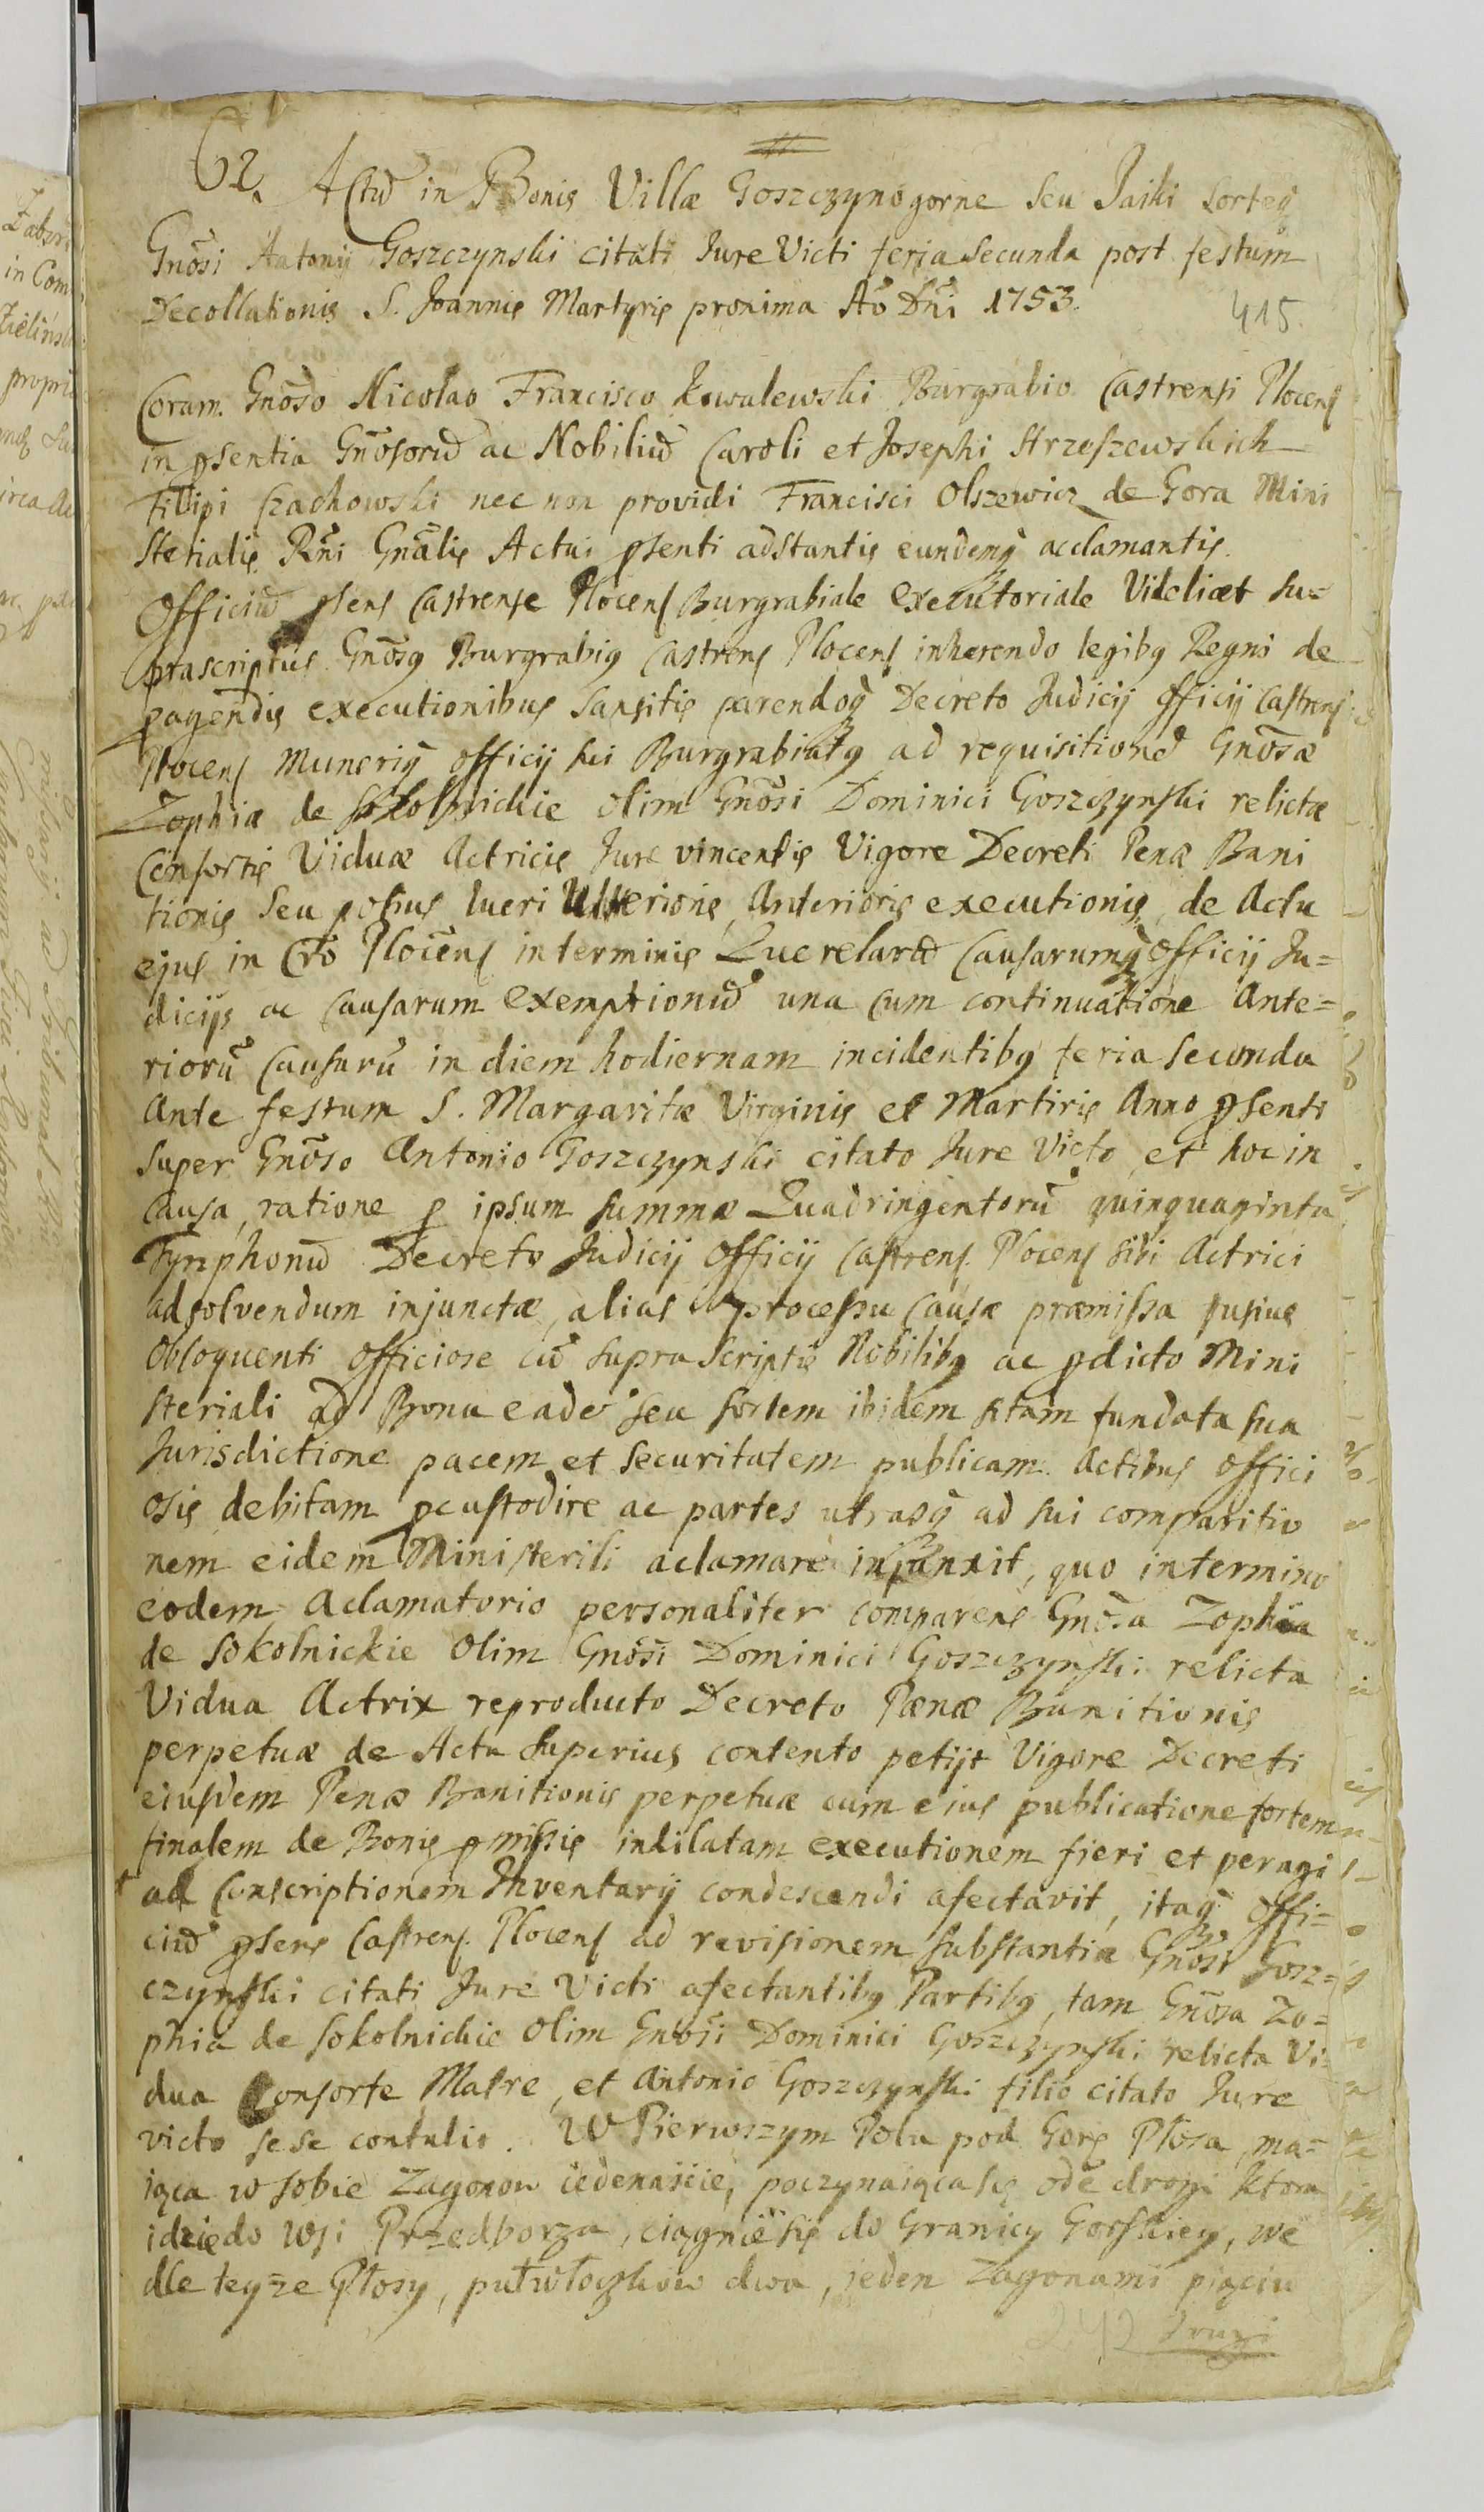 62. Actũ in Bonis Villæ Goszczynogorne seu Jaski Sorteq
Gnõsi Antonij Goszczynski citati Jure Victi feria Secunda post festum
Decollationis S. Joannis Martyris proxima Aõ Dñi 1753.
415.
Coram Gnõso Nicolao Francisco Kowalewski Burgrabio Castrensi Plocens
in psentia Gnõsorũ ac Nobiliũ Caroli et Josephi Strzeszewskich
Filipi Czachowski nec non providi Francisci Olszewicz de Gora Mini
sterialis Rñi Gnãlis Actui psenti adstantis eundemq acclamantis.
Officiũ psens Castrense Plocens Burgrabiale Executoriale Videlicet su=
prascriptus Gnõsq Burgrabiq Castrens Plocens inhærendo legibq Regni de
pagendis executionibus Sansitis parendoq Decreto Judicij Officij Castrens
Plocens Munerisq officij sui Burgrabiatq ad requisitionẽ Gnõsæ
Zophiæ de Sokolnickie olim Gnõsi Dominici Goszczynski relictæ
Consortis Viduæ Actricis Jure vincentis Vigore Decreti Penæ Bani
tionis Seu potius lucri Ulterioris Anterioris executionis, de Actu
ejus in Cro Plocens in terminis Querelarũ Causarumq Officij Ju=
dicijs ac Causarum Exemptionũ una cum continuatione Ante=
riorũ Causarũ in diem hodiernam incidentibq feria Secunda
Ante festum S. Margaritæ Virginis et Martiris Anno psenti
Super Gnõso Antonio Goszczynski citato Jure Victo, et hoc in
Causa, ratione p ipsum summæ Quadringentorũ quinquaginta
Tynphonũ Decreto Judicij Officij Castrens. Plocens sibi Actrici
adsolvendum injunctæ, alias processu Causæ præmissa fusius
Obloquenti Officiose cũ supra Scriptis Nobilibq ac pdicto Mini
steriali ad Bona eadẽ seu sortem ibidem sitam fundata sua
Jurisdictione pacem et Securitatem publicam Actibus Offici
osis debitam pcustodire ac partes utrasq ad sui comparitio
nem eidem Ministerili aclamare injunxit, quo in termino
eodem Aclamatorio personaliter comparens Gnõsa Zophia
de Sokolnickie Olim Gnõsi Dominici Goszczynski relicta
Vidua Actrix reproducto Decreto Pænæ Banitionis
perpetuæ de Actu Superius contento petijt Vigore Decreti
eiusdem Penæ Banitionis perpetuæ cum eius publicatione fortem
finalem de Bonis pmissis indilatam executionem fieri et peragi
ad Conscriptionem Inventarij condescendi afectavit, itaq Offi=
ciũ psens Castrens. Plocens ad revisionem substantiæ Gnõsi Gosz=
czynski citati Jure Victi afectantibq Partibq, tam Gnõsa Zo=
phia de Sokolnickie Olim Gnõsi Dominici Goszczynski relicta Vi=
dua Consorte Matre, et Antonio Goszczynski filio citato Jure
victo sese contulit. W Pierwszym Polu pod Gorą Płosa, ma=
iąca w sobie Zagonow iedenaście, poczynaiąca się ode drogi ktora
idzie do Wsi Przedborza, ciągnie się do Granicy Gorskiey, we
dle teyze Płosy, pułwłoczkow dwa, jeden Zagonami piąciu
242 drugi